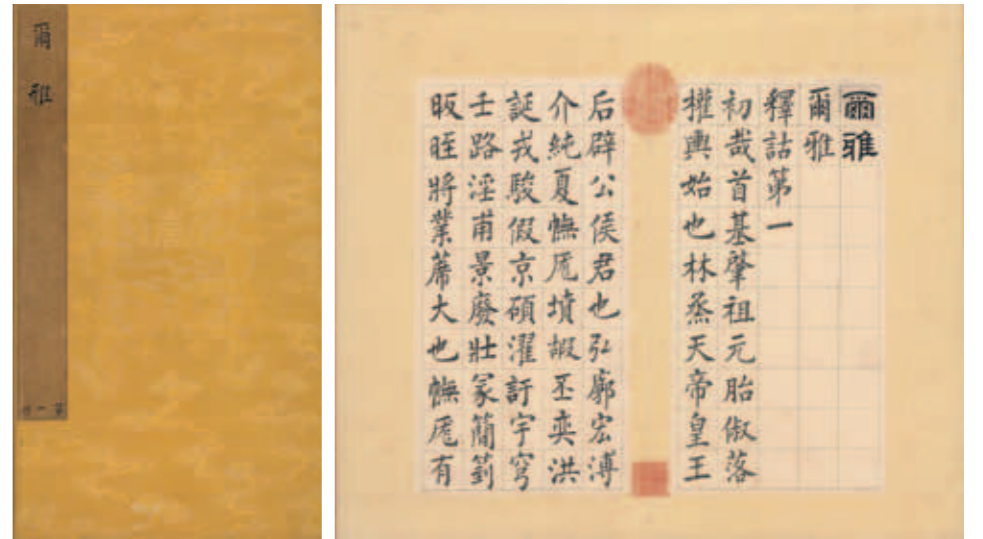 爾雅
爾雅
爾雅
釋詁第一
初哉首基肇祖元胎俶落
權輿始也林烝天帝皇王
后辟公侯君也弘廓宏溥
介純夏幠厖墳嘏丕奕洪
誕戎駿假京碩濯訏宇穹
壬路淫甫景廢壯冢簡箌
昄晊將業蓆大也幠厖有